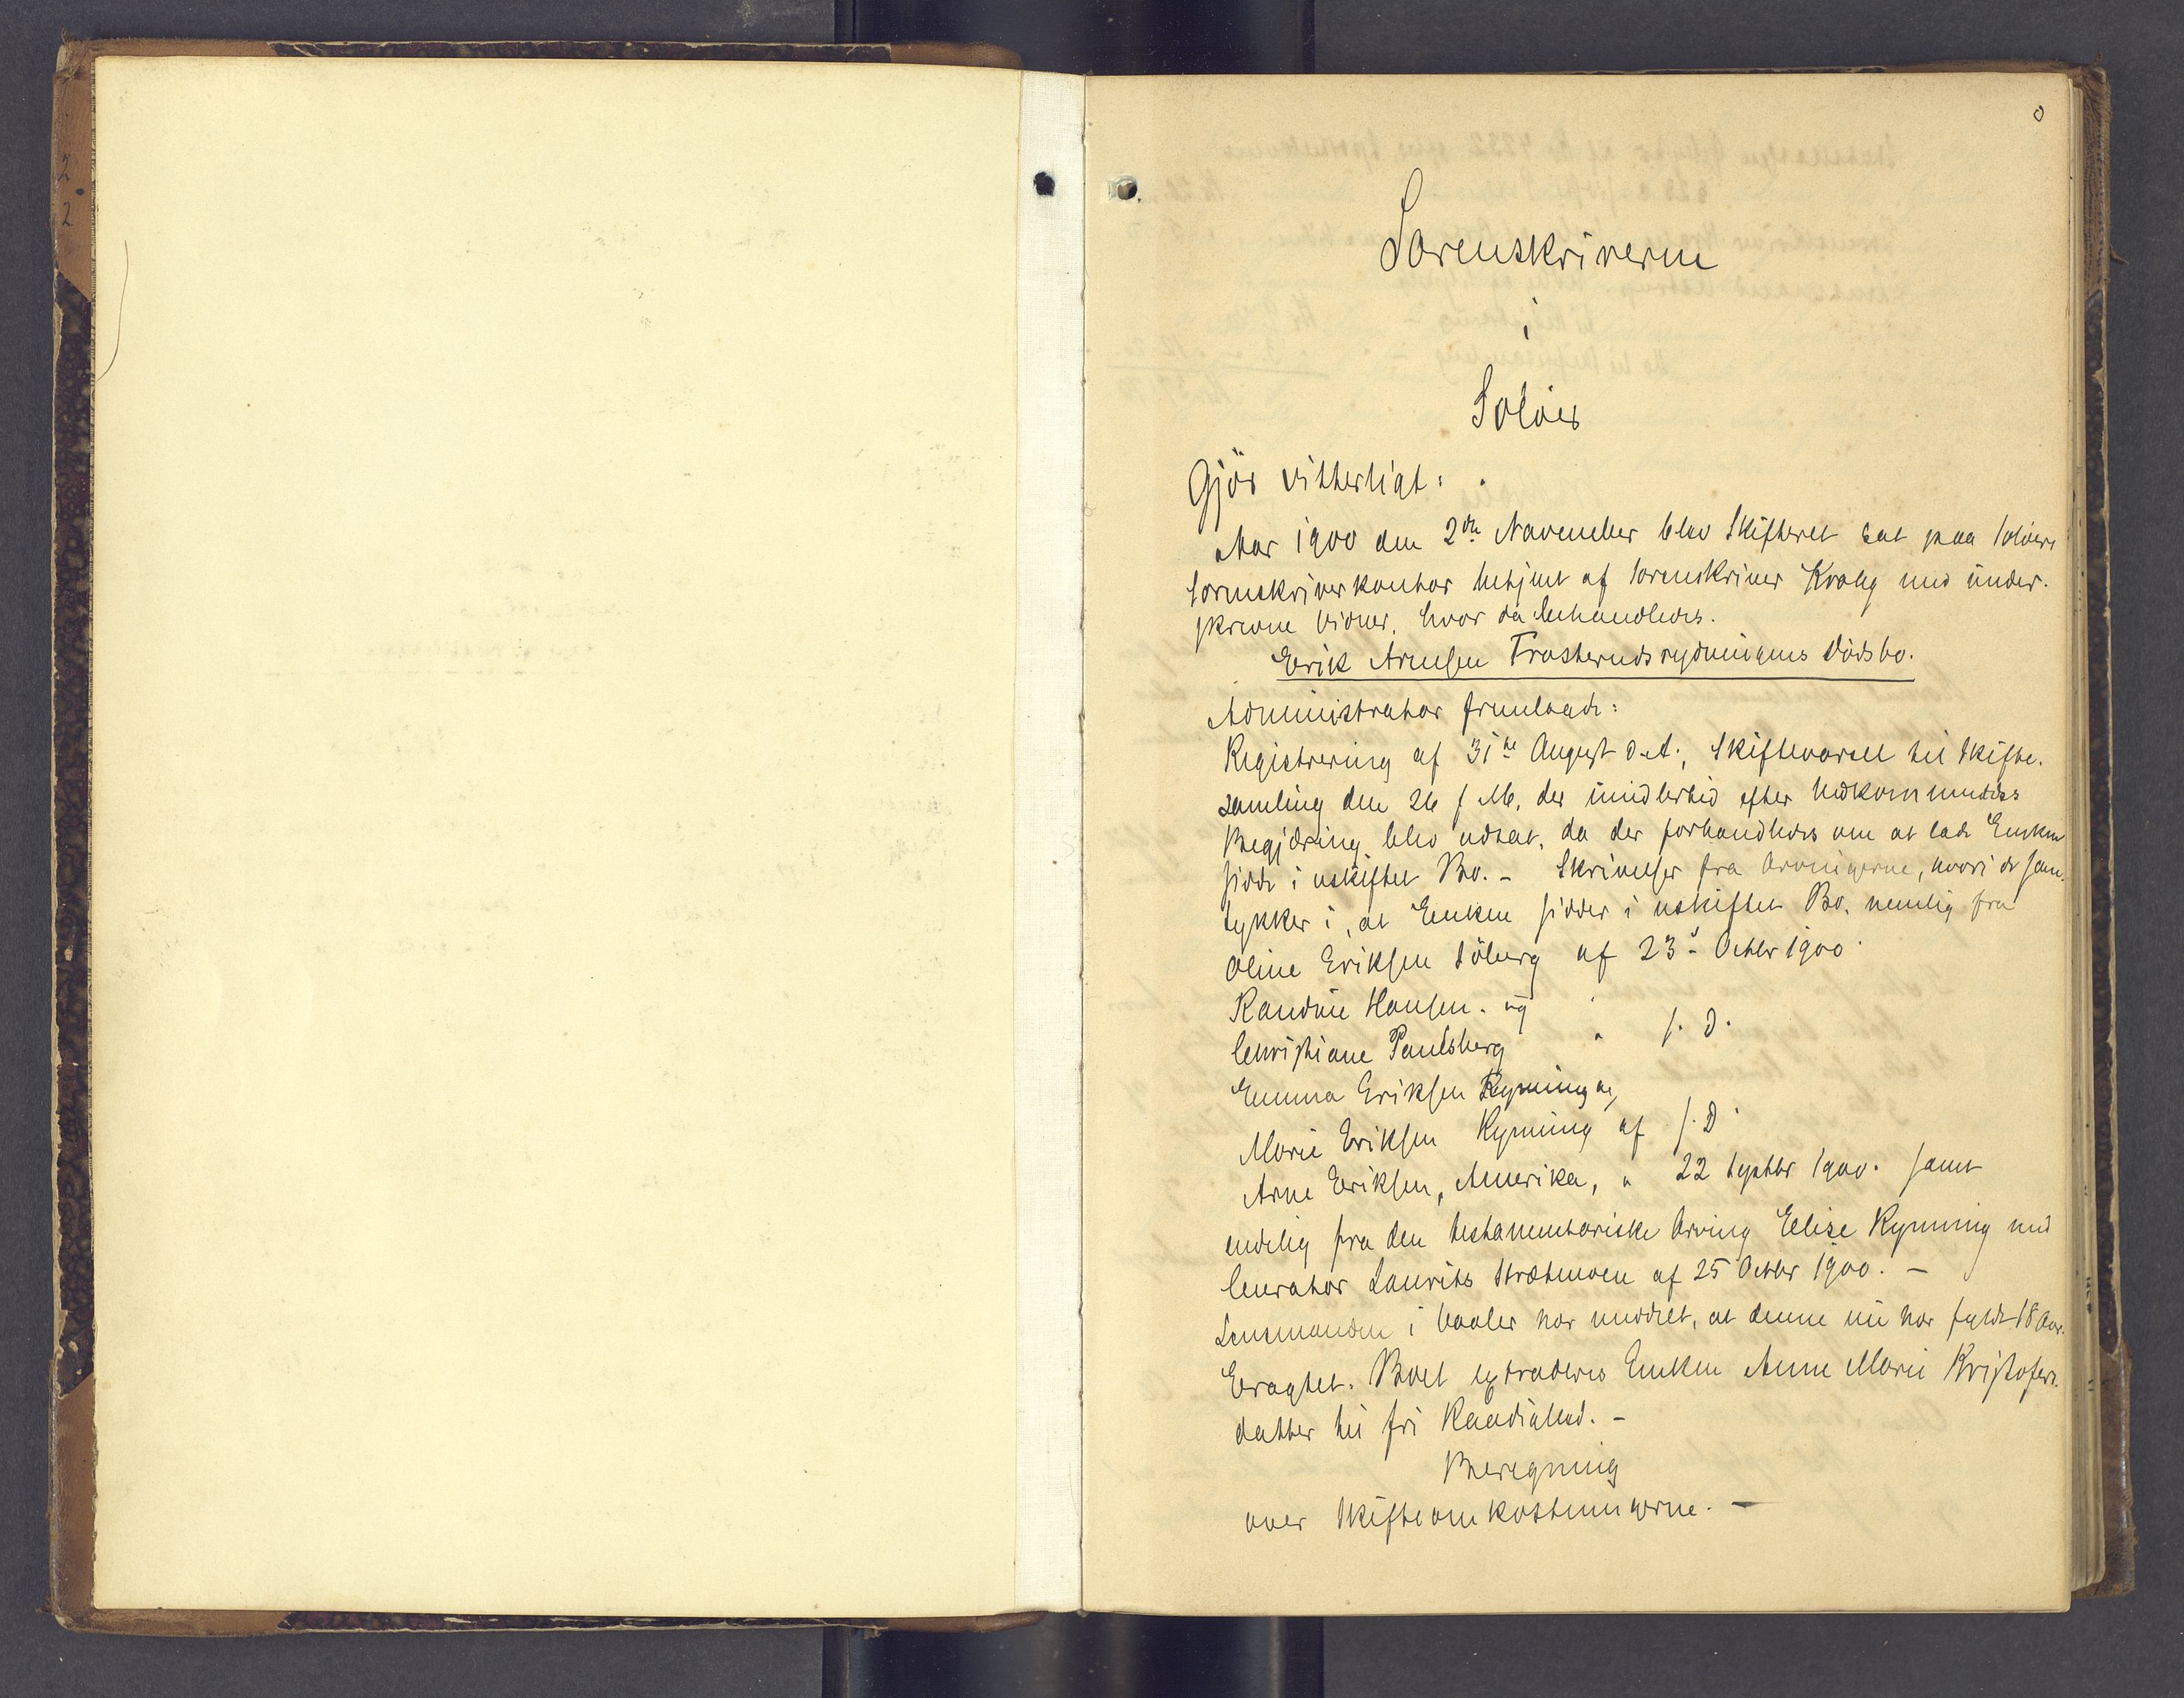 0
2
2
Sorenskriveren
i
Solöer
Gjör vitterligt:
Aar 1900 den 2den November blev Skifteret sat paa Solöers
Sorenskriverkontor betjent af Sorenskriver Kraby med under-
skrevne Vidner, hvor da behandledes.
Erik Arnesen Frosterudsrydningens Dödsbo.
Administrator fremlagde:
Registrering af 31te August d. A., Skiftevarsel til Skifte-
samling den 26 f. M. der imidlertid efter Vedkommendes
Begjæring blev udsat, da der forhandledes om at lade Enken
sidde i uskiftet Bo. - Skrivelser fra Arvingerne, hvori de sam-
tykker i, at Enken sidder i uskiftet Bo, nemlig fra
Oline Eriksen Söberg af 23d Octbr 1900.
Randine Hansen og
Christiane Paulsberg " s. D.
Emma Eriksen Rynning og
Marie Eriksen Rynning af s. D.
Arne Eriksen, Amerika, " 22 Septbr 1900. samt
endelig fra den testamentariske Arving Elise Rynning med
Curator Laurits Strætmoen af 25 Octbr 1900. -
Lensmanden i Vaaler har meddelt, at denne nu har fyldt 18 Aar.
Eragtet. Boet extraderes Enken Anne Marie Kristofers-
datter til fri Raadighed. -
Beregning
over Skifteomkostningerne. -